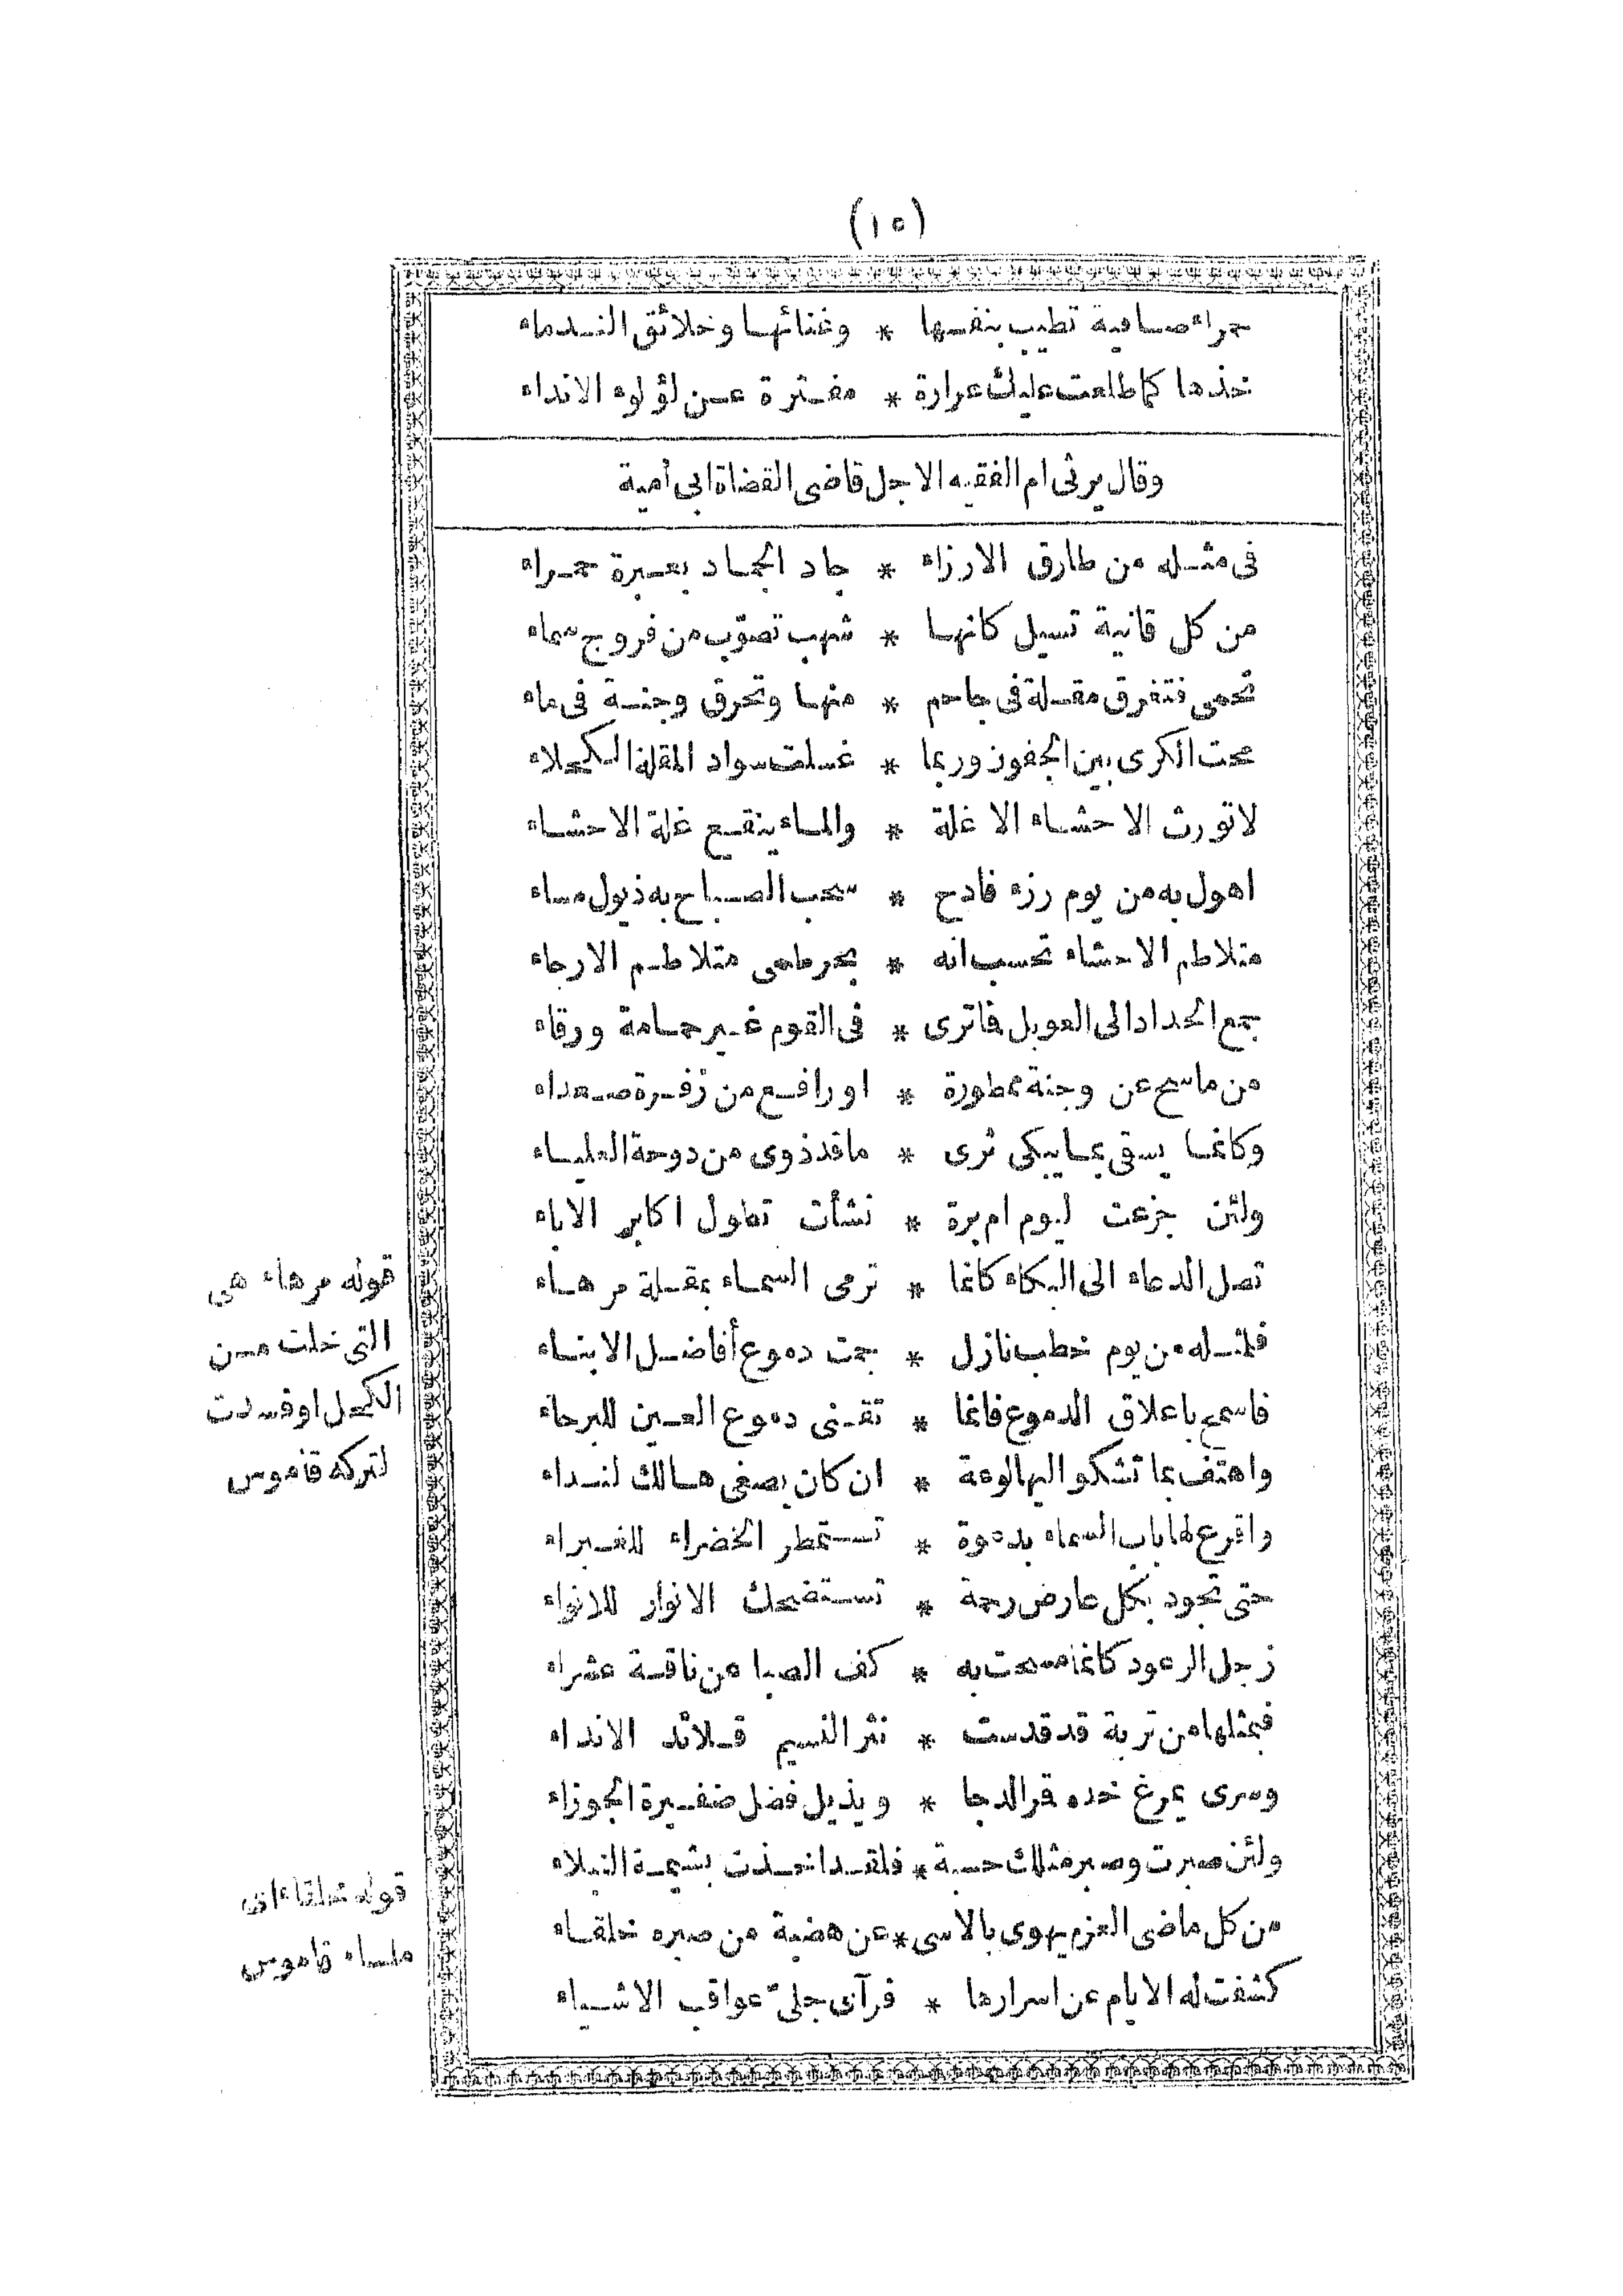 (١٥)
حمراء صافية تطيب بنفسها * وغنائها وخلائق الندماء
خذها كما طلعت عليك عرارة * مفترة عن لؤلوء الانداء
وقال يرثى ام الفقيه الاجل قاضى القضاة ابى أمية
فى مثله من طارق الارزاء * جاد الجماد بعبرة حمراء
من كل قانية تسيل كانها * شهب تصوّب من فروج سماء
تحمى فتغرق مقلة فى جاحم * منها وتحرق وجنة فى ماء
محت الكرى بين الجفون وربما * غسلت سواد المقلة الكحلاء
لاتورث الاحشاء الا غلة * والماء ينقع غلة الاحشاء
اهول به من يوم رزء فادح * سحب الصباح به ذيول مساء
متلاطم الاحشاء تحسب انه * بحر طمى متلاطم الارجاء
جمع الحداد الى العويل فاترى * فى القوم غير حمامة ورقاء
من ماسح عن وجنة ممطورة * او رافع من زفرة صعداء
وكانما يسقى بما يبكى ثرى * ماقد ذوى من دوحة العلياء
ولئن جزعت ليوم ام برة * نشأت تطول اكابر الاباء
تصل الدعاء الى البكاء كانما * ترمى السماء بمقلة مرهاء
فلمثله من يوم خطب نازل * جمت دموع أفاضل الابناء
فاسمح باعلاق الدموع فانما * تقنى دموع العين للبرحاء
واهتف بما تشكو اليها لوعة * ان كان يصغى هالك لنداء
واقرع لها باب السماء بدعوة * تستمطر الخضراء للغبراء
حتى تجود بكل عارض رحمة * تستضحك الانوار للانواء
زجل الرعود كانما مسحت به * كف الصبا عن ناقة عشراء
فبمثلها من تربة قد قدست * نثر النسيم قلائد الانداء
وسرى يمرغ خده قمر الدجا * ويذيل فضل ضفيرة الجوزاء
ولئن صبرت وصبر مثلك حسبة * فلقد اخذت بشيمة النبلاء
من كل ماضى العزم يهوى بالاسى * عن هضبة من صبره خلقاء
كشفت له الايام عن اسرارها * فرآى جلىّ عواقب الاشياء
قوله مرهاء هى
التى خلت من
الكحل او فسدت
لتركه قاموس
قوله خلقاء اى
ملساء قاموس